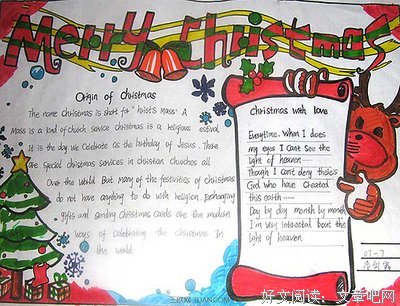 Merry Christmas
Origin of Christmas
The name Christmas is short for "hrist's Mass. A
Mass is a kind of church service christmas is a religious estival
It is the day We celebrate as the birthday of Jesus. There
are special christmas services in christian churches all
Over the World. But many of the festivities of christmas
do not have anything to do with religion. exchanging
gifts and sending Christmas cards are the modern
Ways of celebrating the christmas In
the World.
Christmas with love
Everytime. When I does
my eyes I can't see the
light of heaven
Though I can't deny there's
God who have created
this earth
Day by day month by month
I'm very interested bout the
light of heaven
07-7
三联网 3LIAN.COM
好文阅读:文章吧网